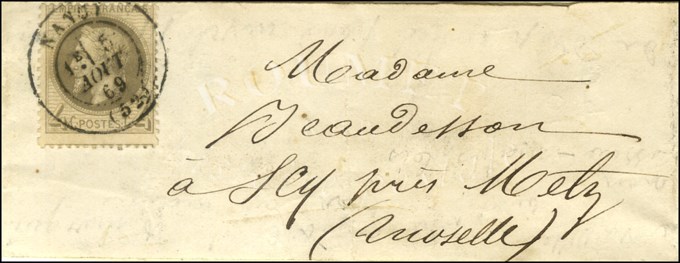 EMPIRE FRANÇAIS
NANCY
1E 5
AOUT
69
(52)
POSTES
Madame
Beaudesson
à Scy près Metz
(Moselle)